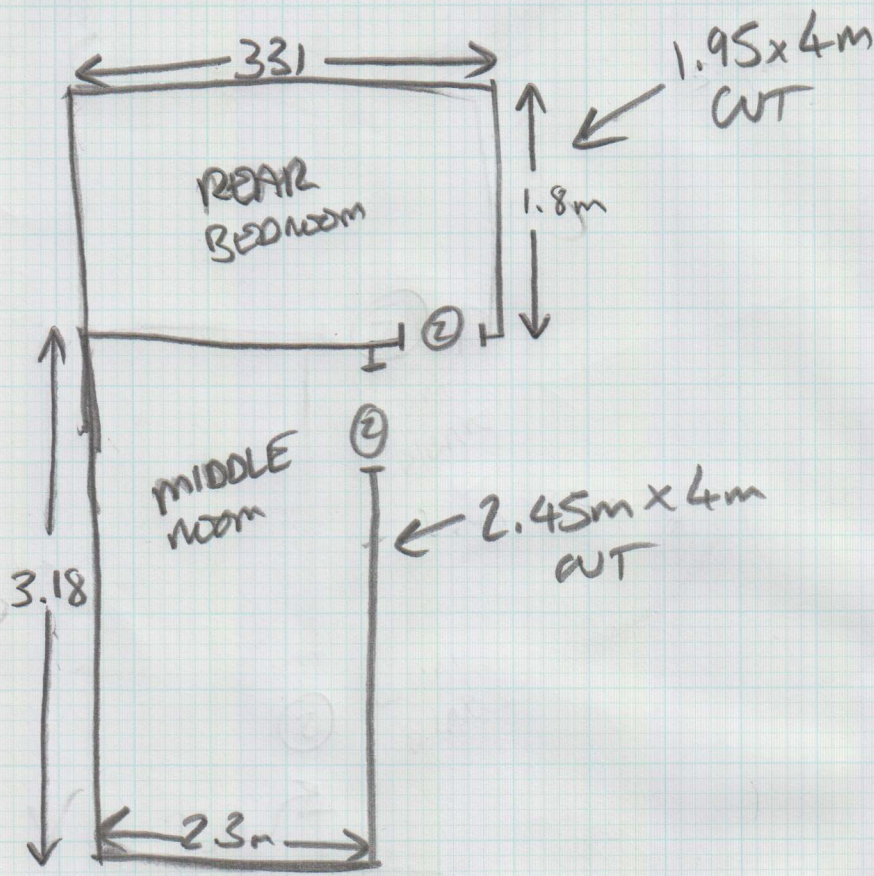 331
1.95 x 4m
CUT
REAR
BEDROOM
1.8m
2
2
MIDDLE
ROOM
2.45m x 4m
CUT
3.18
2.3m